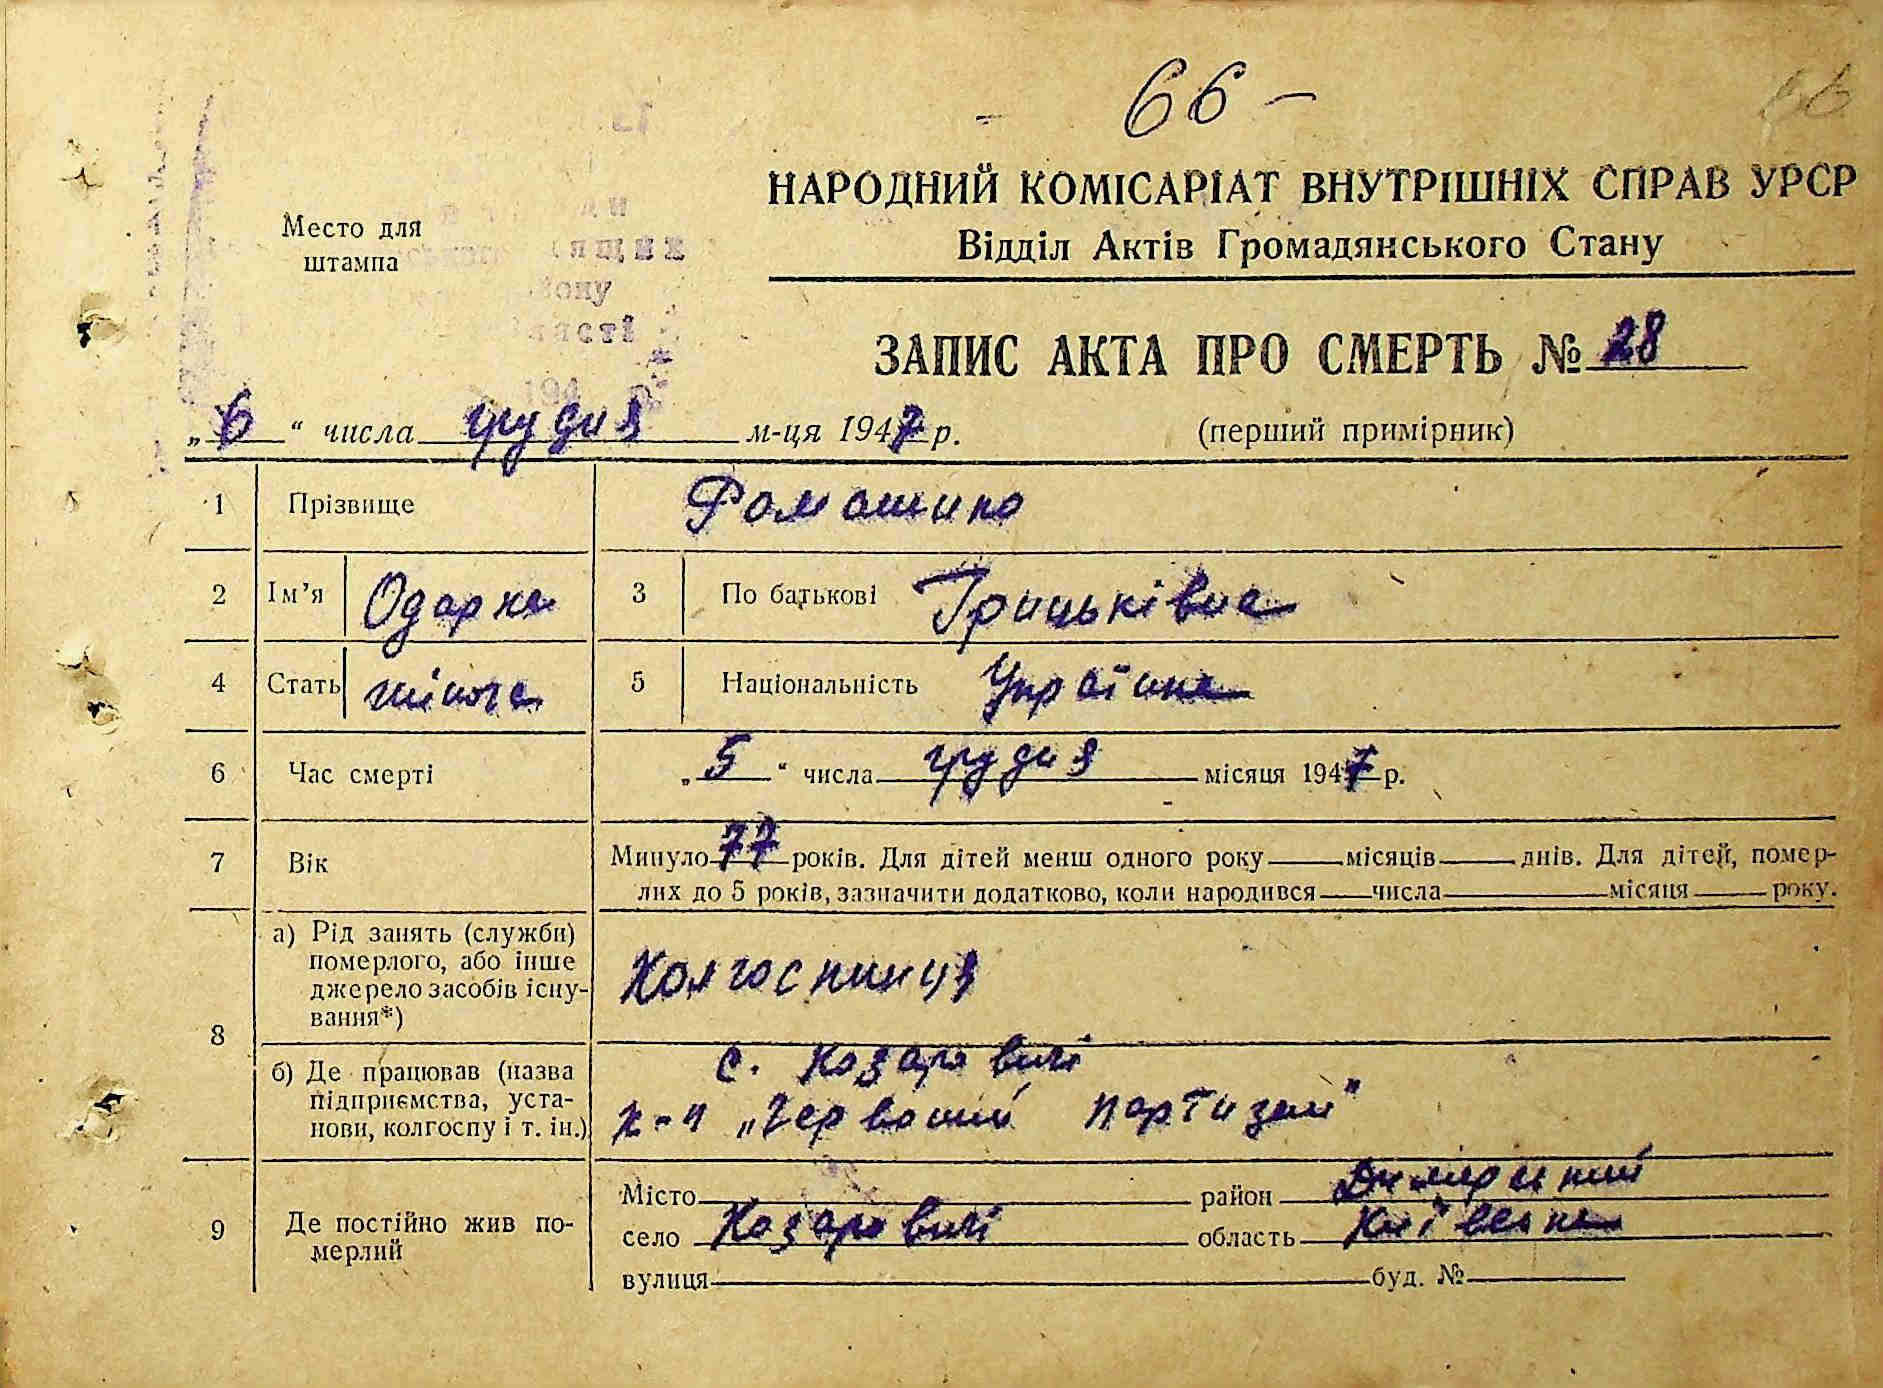 66 -
66
НАРОДНИЙ КОМІСАРІАТ ВНУТРІШНІХ СПРАВ УРСР
Відділ Актів Громадянського Стану
Место для
штампа
ЗАПИС АКТА ПРО СМЕРТЬ № 28
„ 6 “ числа грудня м-ця 1947 р. (перший примірник)
1 Прізвище Ромашина
2 Ім’я Одарка 3 По батькові Грицьківна
4 Стать жіноча 5 Національність Українка
6 Час смерті „ 5 “ числа грудня місяця 1947 р.
7 Вік Минуло 77 років. Для дітей менш одного року місяців днів. Для дітей, помер-
лих до 5 років, зазначити додатково, коли народився числа місяця року.
8 а) Рід занять (служби)
померлого, або інше
джерело засобів існу-
вання*)
Колгоспниця
б) Де працював (назва
підприємства, уста-
нови, колгоспу і т. ін.)
с. Козаровичі
к-п „Червоний партизан"
9 Де постійно жив по-
мерлий
Місто район Димерський
село Козаровичі область Київська
вулиця буд. №